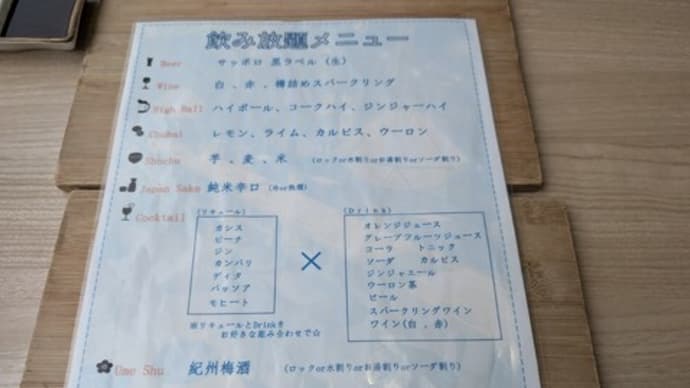 飲み放題メニュー
Beer サッポロ 黒ラベル (生)
Wine 白、赤、樽詰めスパークリング
High Ball ハイボール、コークハイ、ジンジャーハイ
Chuhai レモン、ライム、カルピス、ウーロン
Shochu 芋、麦、米 (ロックor水割りorお湯割りorソーダ割り)
Japan Sake 純米辛口 (冷or熱燗)
Cocktail
(リキュール)
カシス
ピーチ
ジン
カンパリ
ディタ
パッソア
モヒート
×
(Drink)
オレンジジュース
グレープフルーツジュース
コーラ トニック
ソーダ カルピス
ジンジャエール
ウーロン茶
ビール
スパークリングワイン
ワイン(白、赤)
※リキュールとDrinkを
お好きな組み合わせで☆
Ume Shu 紀州梅酒 (ロックor水割りorお湯割りorソーダ割り)